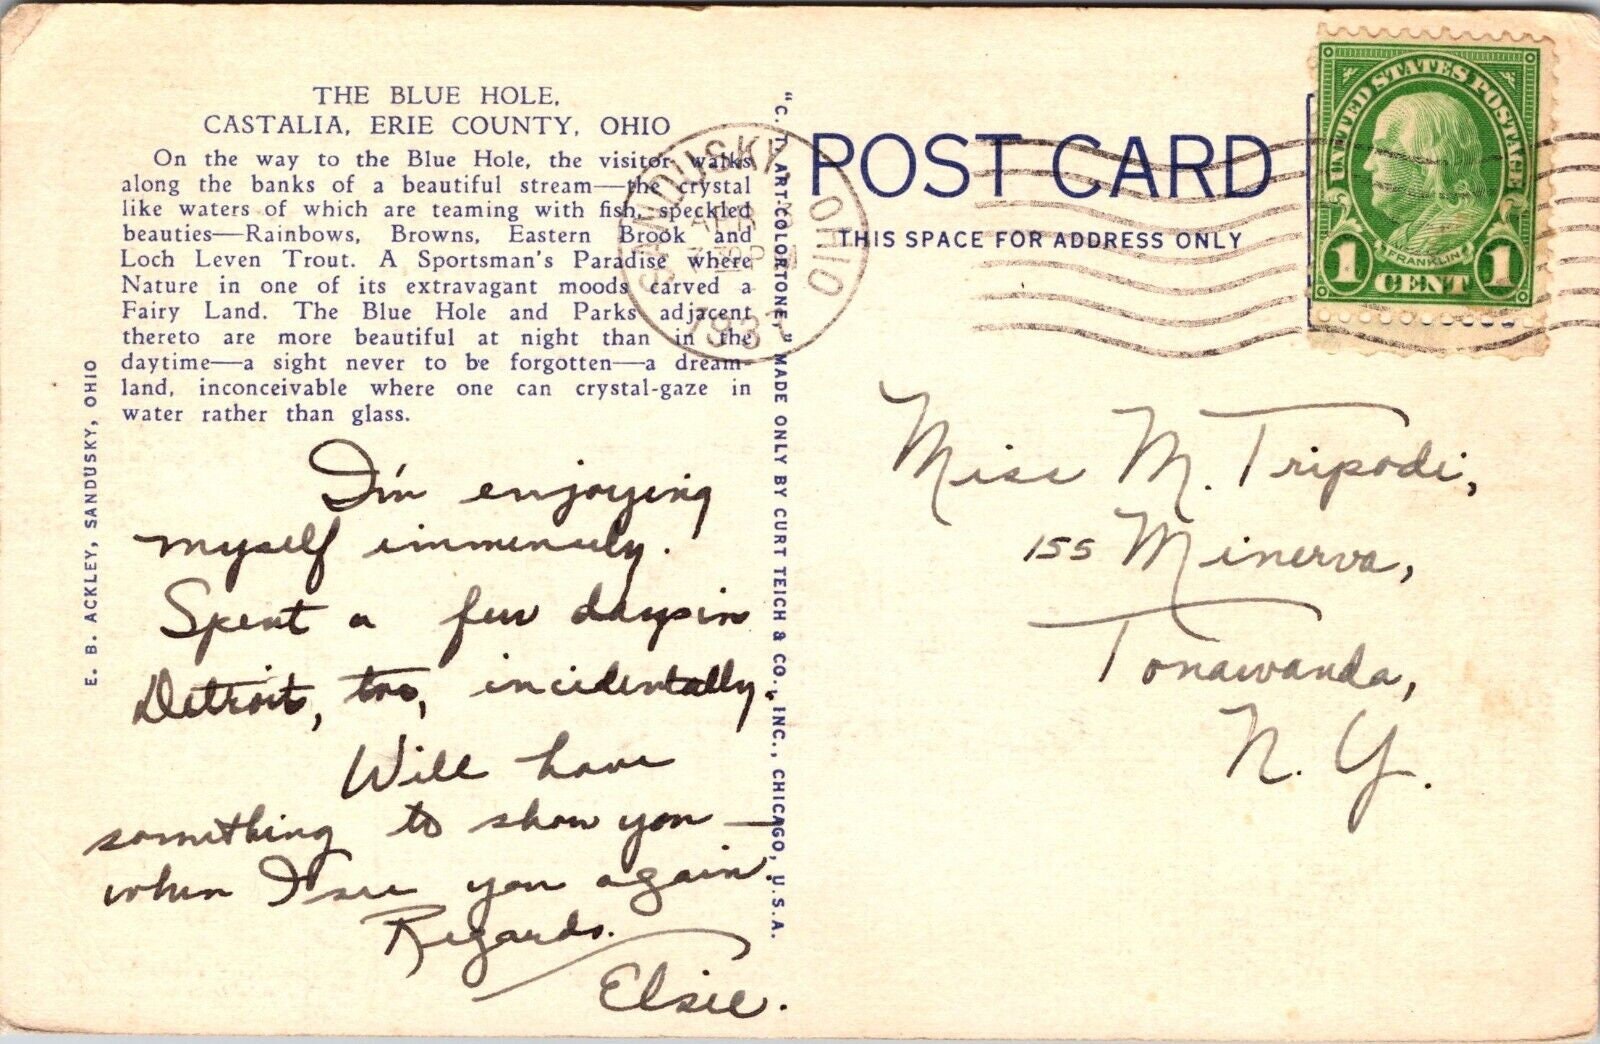 THE BLUE HOLE,
CASTALIA, ERIE COUNTY, OHIO
On the way to the Blue Hole, the visitor walks
along the banks of a beautiful stream—the crystal
like waters of which are teaming with fish, speckled
beauties—Rainbows, Browns, Eastern Brook and
Loch Leven Trout. A Sportsman's Paradise where
Nature in one of its extravagant moods carved a
Fairy Land. The Blue Hole and Parks adjacent
thereto are more beautiful at night than in the
daytime—a sight never to be forgotten—a dream-
land, inconceivable where one can crystal-gaze in
water rather than glass.
E. B. ACKLEY, SANDUSKY, OHIO
I'm enjoying
myself immensely.
Spent a few days in
Detroit, too, incidentally.
Will have
something to show you —
when I see you again.
Regards.
Elsie.
"C. T. ART-COLORTONE," MADE ONLY BY CURT TEICH & CO., INC., CHICAGO, U.S.A.
SANDUSKY OHIO
193
POST CARD
THIS SPACE FOR ADDRESS ONLY
UNITED STATES POSTAGE
FRANKLIN
1 CENT 1
Miss M. Tripodi,
155 Minerva,
Tonawanda,
N. Y.